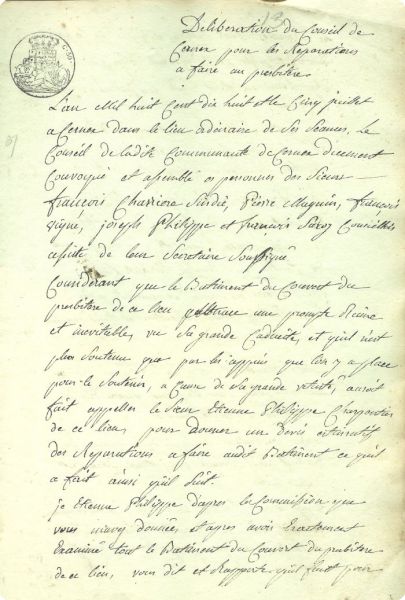 Deliberation du Conseil de
Cernex pour les Reparations
a faire au presbitere
L'an Mil huit Cent dix huit et le Cinq juillet
a Cernex dans le lieu ordinaire de Ses Seances, Le
Conseil de ladite Communauté de Cernex Duement
Convoqué et assemblé es personnes des Sieurs
françois Charriere Sindic, Pierre Magnin, françois
Vigne, joseph Philippe et francois Conseillers
de leur Secretaire Soussigné
Considerant que le Batiment du Couvert du
presbitere de ce lieu une prompte Ruine
et inevitable, vu Sa grande Caducité, et qu'il n'est
plus Soutenu que par les appuis que l'on y a placé
pour le Soutenir, a Cause de Sa grande vetusté, auroit
fait appeller le Sieur Etienne Philippe Charpentier
de ce lieu, pour donner un Devis estimatif
des Reparations a faire audit Batiment ce qu'il
a fait ainsi qu'il Suit
je Etienne Philippe d'apres la Commission que
vous m'avez donnée, et apres avoir Exactement
Examiné tout le Batiment du Couvert du presbitere
de ce lieu, vous dit et Rapporte qu'il faut pour